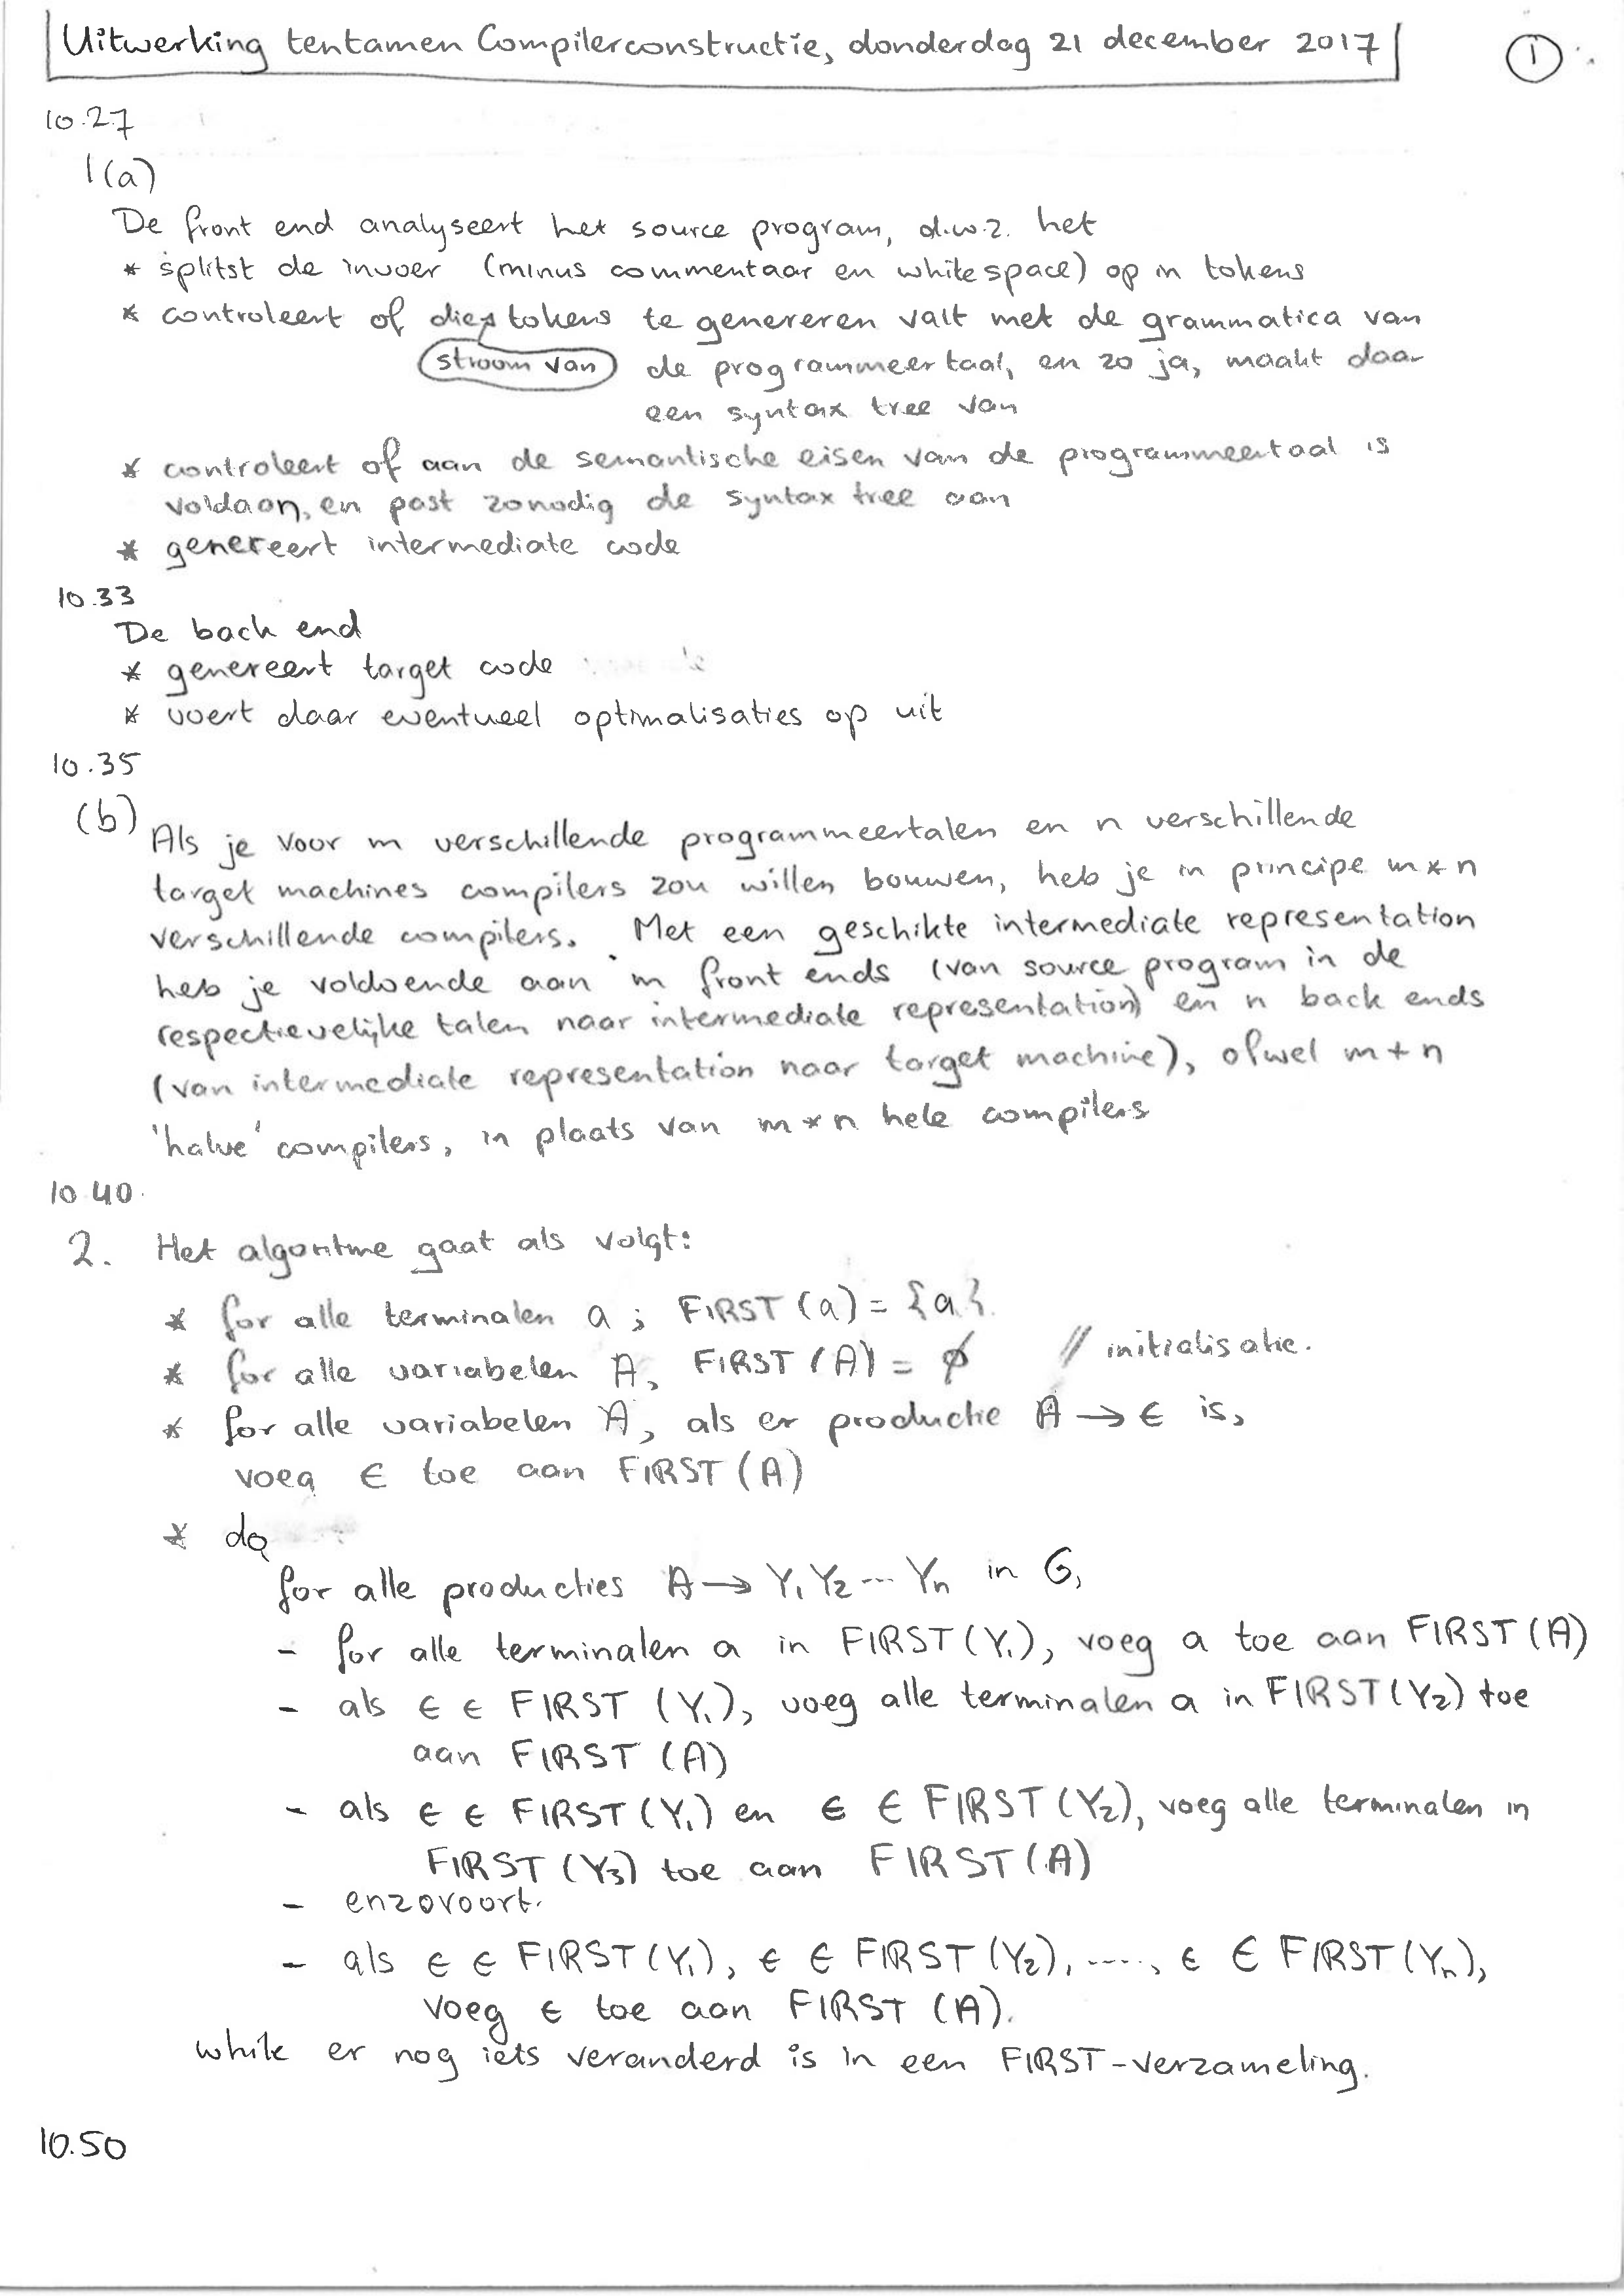 Uitwerking tentamen Compilerconstructie, donderdag 21 december 2017
1
10.27
1(a)
De front end analyseert het source program, d.w.z. het
* splitst de invoer (minus commentaar en whitespace) op in tokens
* controleert of die stroom van tokens te genereren valt met de grammatica van
de programmeertaal, en zo ja, maakt daar
een syntax tree van
* controleert of aan de semantische eisen van de programmeertaal is
voldaan, en past zonodig de syntax tree aan
* genereert intermediate code
10.33
De back end
* genereert target code
* voert daar eventueel optimalisaties op uit
10.35
(b)
Als je voor m verschillende programmeertalen en n verschillende
target machines compilers zou willen bouwen, heb je in principe m * n
verschillende compilers. Met een geschikte intermediate representation
heb je voldoende aan m front ends (van source program in de
respectievelijke talen naar intermediate representation) en n back ends
(van intermediate representation naar target machine), ofwel m + n
'halve' compilers, in plaats van m * n hele compilers
10.40
2. Het algoritme gaat als volgt:
* for alle terminalen a; FIRST(a) = {a}.
* for alle variabelen A, FIRST(A) = ∅ // initialisatie.
* for alle variabelen A, als er productie A → ϵ is,
voeg ϵ toe aan FIRST(A)
* do
for alle producties A → Y₁Y₂...Yₙ in G,
- for alle terminalen a in FIRST(Y₁), voeg a toe aan FIRST(A)
- als ϵ ∈ FIRST(Y₁), voeg alle terminalen a in FIRST(Y₂) toe
aan FIRST(A)
- als ϵ ∈ FIRST(Y₁) en ϵ ∈ FIRST(Y₂), voeg alle terminalen in
FIRST(Y₃) toe aan FIRST(A)
- enzovoort.
- als ϵ ∈ FIRST(Y₁), ϵ ∈ FIRST(Y₂), ....., ϵ ∈ FIRST(Yₙ),
voeg ϵ toe aan FIRST(A).
while er nog iets veranderd is in een FIRST-verzameling.
10.50